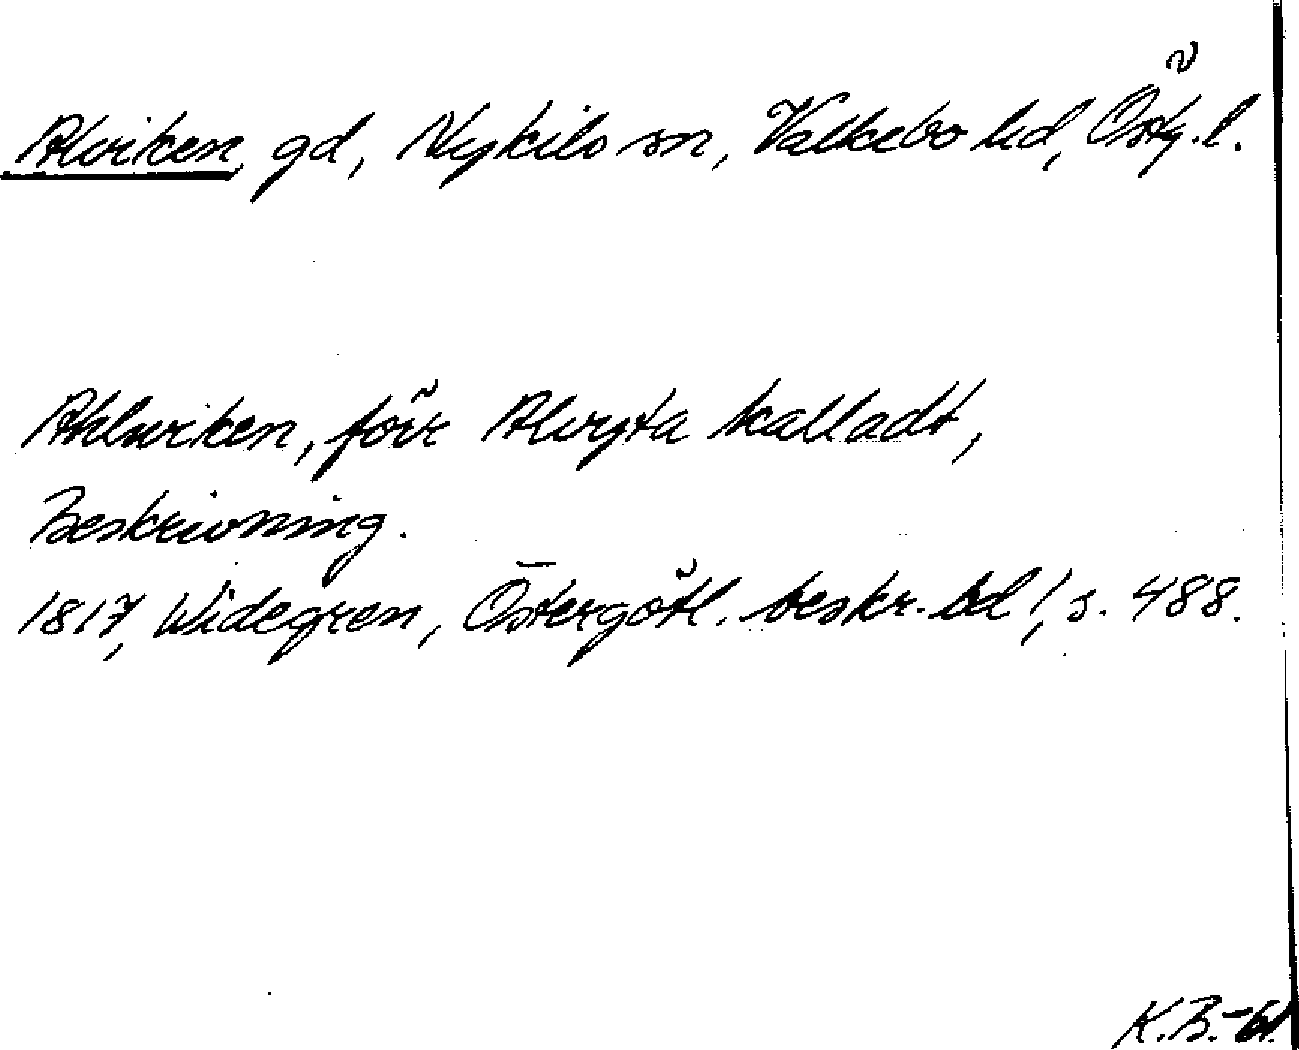 Alviken, gd, Nykils sn, Valkebo hd, Östg.l.
Ahlwiken, förr Alvyta kalladt,
Beskrivning.
1817, Widegren, Östergötl. beskr. bd 1, s. 488.
K.B.-61.